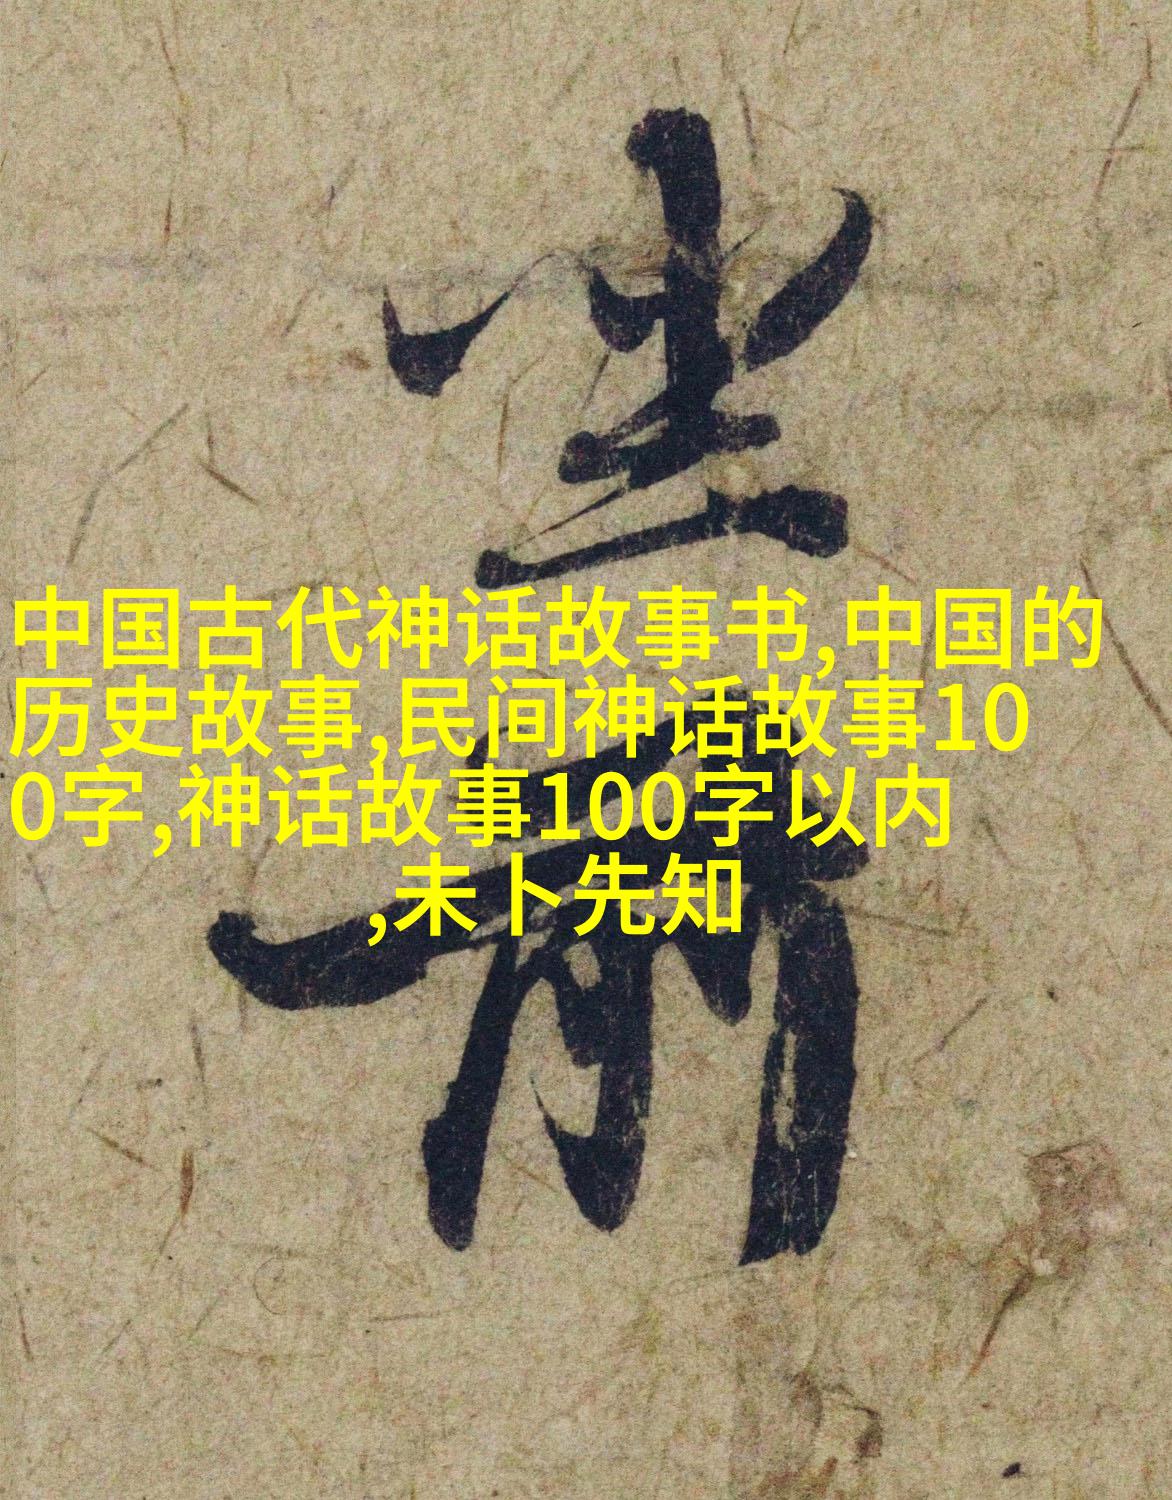 中国古代神话故事书,中国的
历史故事,民间神话故事10
0字,神话故事100字以内
,未卜先知